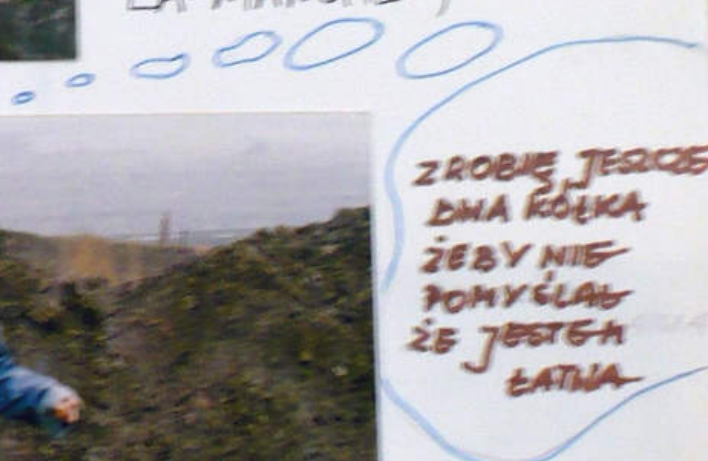 LA MANCHE,
ZROBIĘ JESZCZE
DWA KÓŁKA
ŻEBY NIE
POMYŚLAŁ
ŻE JESTEM
ŁATWA